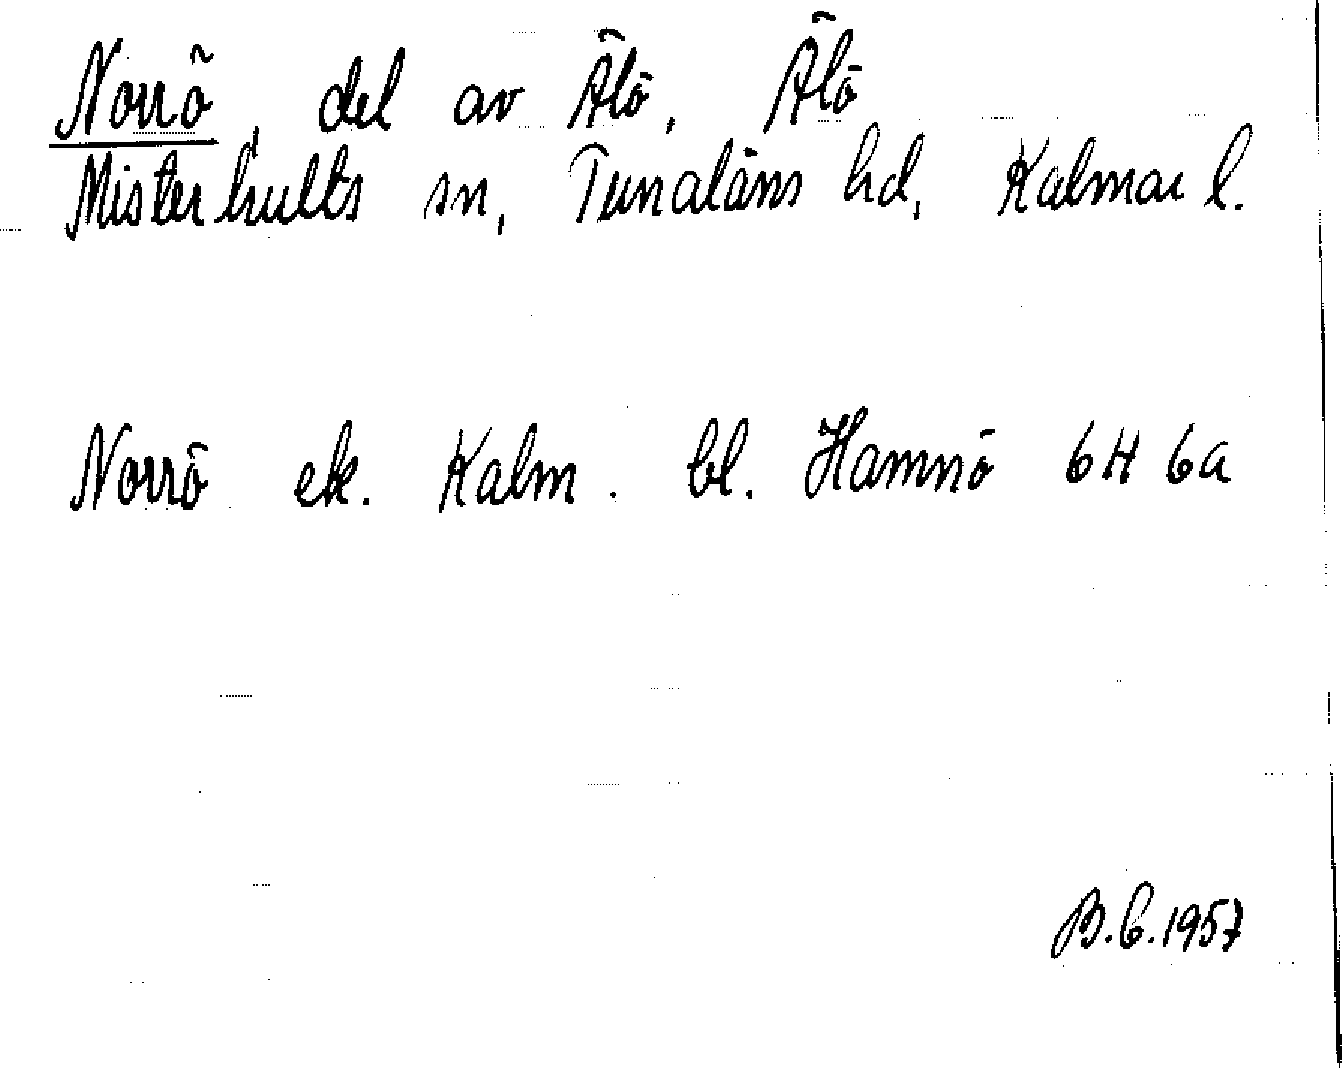 Norrö, del av Älö, Älö
Misterhults sn, Tunaläns hd, Kalmar l.
Norrö ek. Kalm. bl. Hamnö 6H 6a
B.C.1957